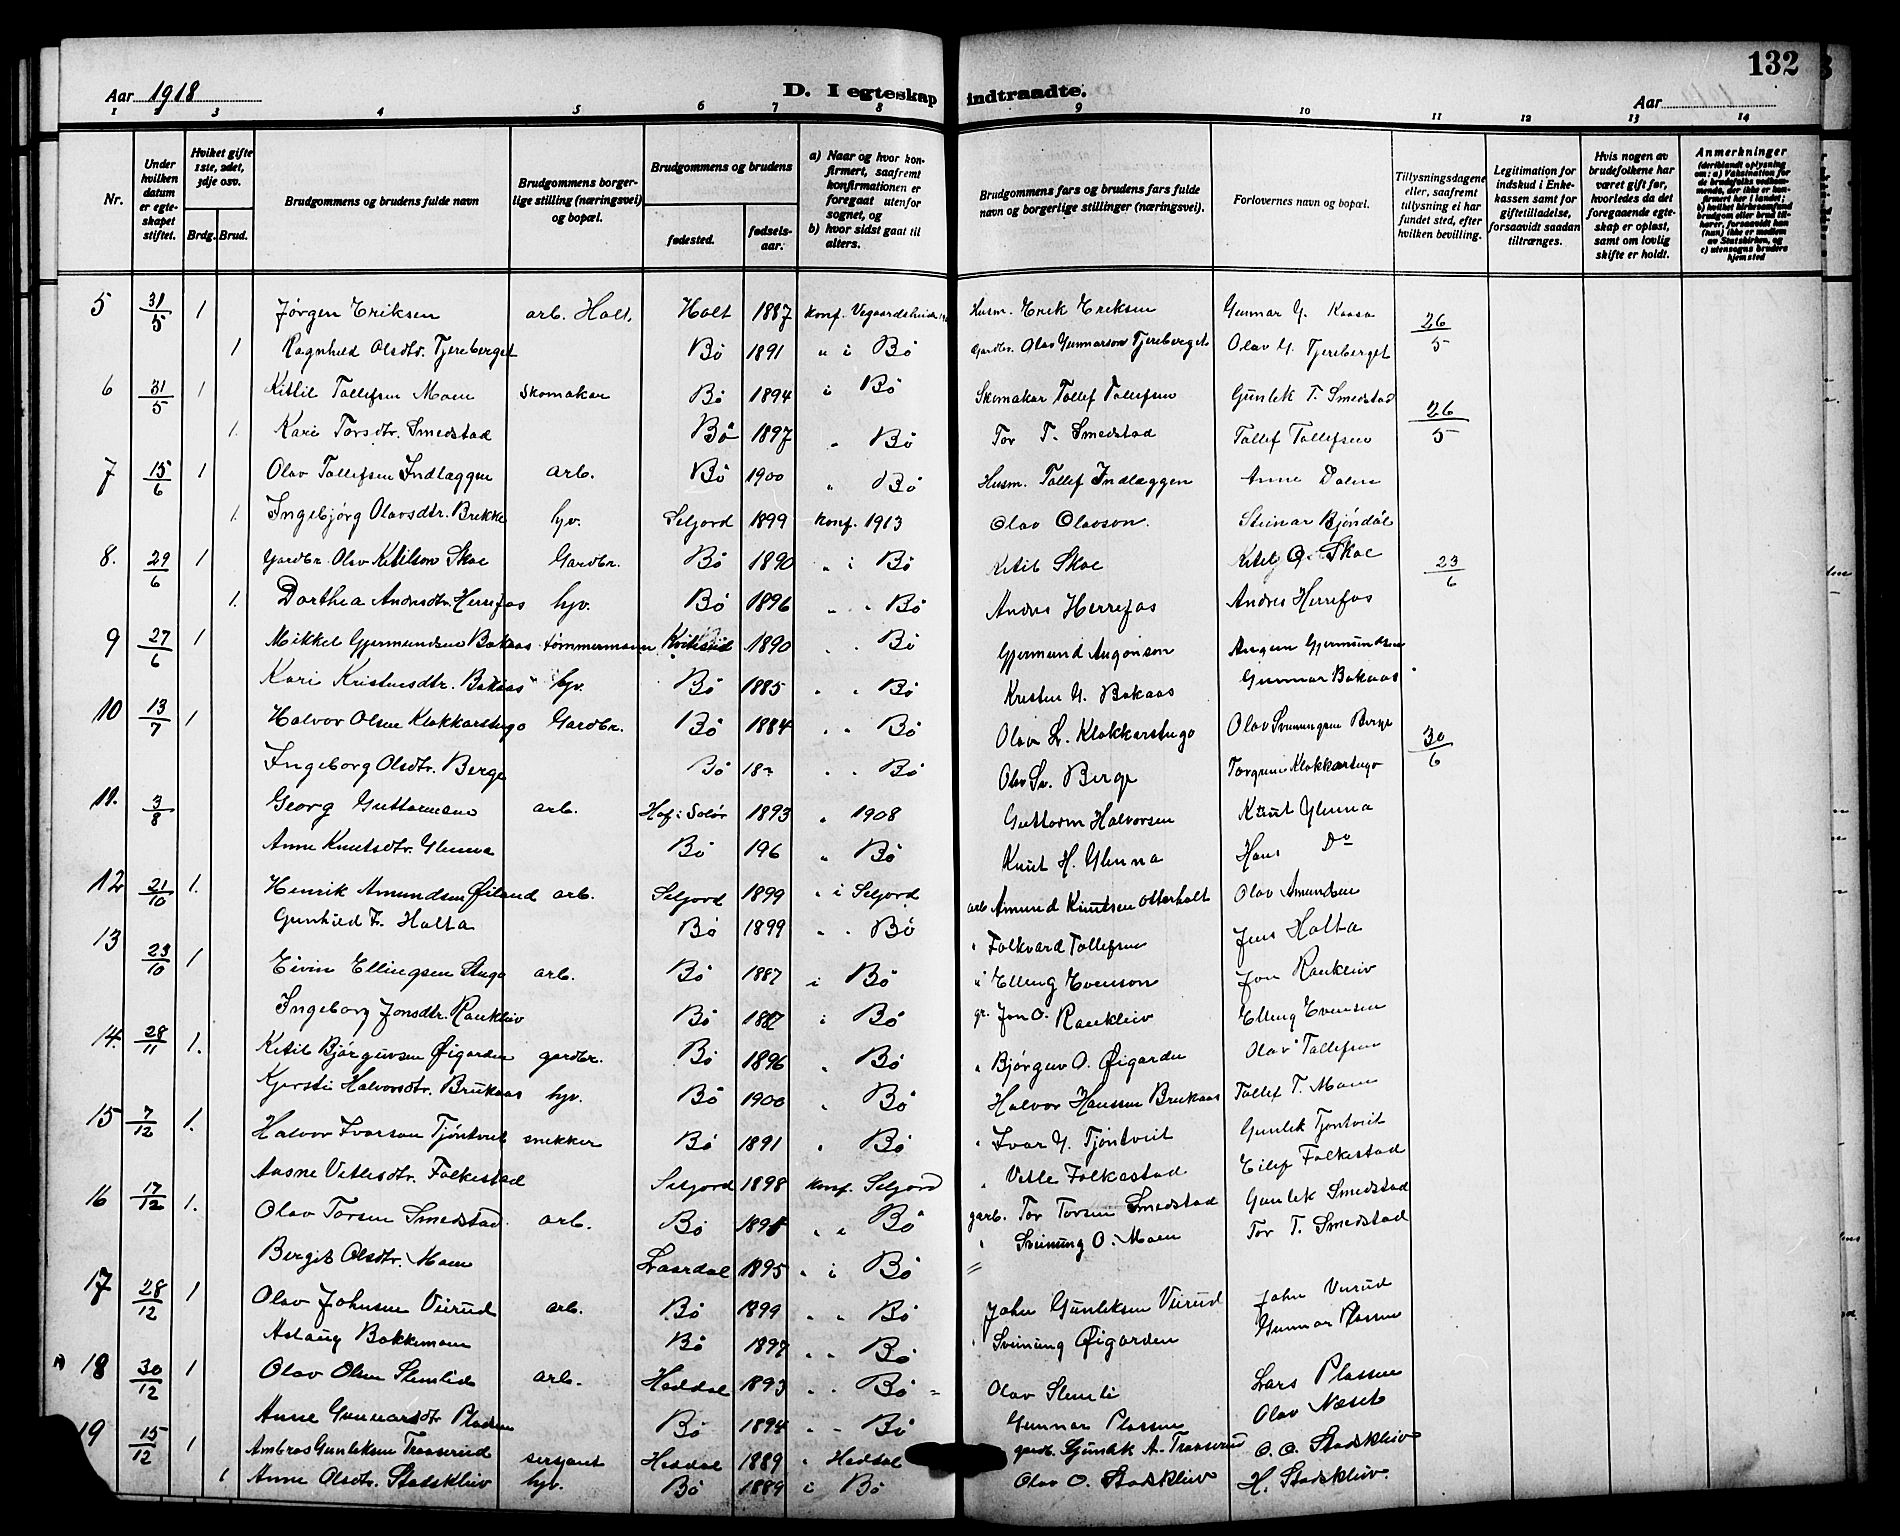 132
Aar 1918
D. I egteskap indtraadte.
Aar
1 3 4 5 6 7 8 9 10 11 12 13 14
Nr.
Under hvilken datum er egteskapet stiftet.
Hvilket gifte 1ste, 2det, 3dje osv.
Brdg. Brud.
Brudgommens og brudens fulde navn
Brudgommens borgerlige stilling (næringsvei) og bopæl.
Brudgommens og brudens
fødested.
fødselsaar.
a) Naar og hvor konfirmert, saafremt konfirmationen er foregaat utenfor sognet, og
b) hvor sidst gaat til alters.
Brudgommens fars og brudens fars fulde navn og borgerlige stillinger (næringsvei).
Forlovernes navn og bopæl.
Tillysningsdagene eller, saafremt tillysning ei har fundet sted, efter hvilken bevilling.
Legitimation for indskud i Enkekassen samt for giftetilladelse, forsaavidt saadan tiltrænges.
Hvis nogen av brudefolkene har været gift før, hvorledes da det foregaaende egteskap er opløst, samt om lovlig skifte er holdt.
Anmerkninger
(deriblandt oplysning om: a) Vaksination for de brudefolks vedkommende, der ikke er konfirmert her i landet; b) hvilket kirkesamfund brudgom eller brud tilhører, forsaavidt han (hun) ikke er medlem av Statskirken, og c) utensogns bruders hjemsted
5 31/5 1 Jørgen Eriksen arb. Holt. Holt 1887 konf. Vegaardsheia Husm. Erik Eriksen Gunnar G. Kaasa 26/5
1 Ragnhild Olsdtr. Tjereberget Bø 1891 " i Bø Gardbr. Olav Gunnarson Tjereberget Olav G. Tjereberget
6 31/5 1 Kittil Tollefsen Moen Skomakar Bø 1894 i Bø Skomakar Tollef Tollefsen Gunlek T. Smedstad 26/5
1. Kari Torsdtr. Smedstad Bø 1897 " Bø Tor T. Smedstad Tollef Tollefsen
7 15/6 1 Olav Tollefsen Indlæggen arb. Bø 1900 " Bø Husm. Tollef Indlæggen Anne Dalen
1. Ingebjørg Olavsdtr. Brekke hv. Seljord 1899 konf. 1913 Olav Olavson. Steinar Bjøndal
8. 29/6 1 Gardbr. Olav Ketilson Skoe Gardbr. Bø 1890 " i Bø Ketil Skoe Ketil O. Skoe 23/6
1. Dorthea Andresdtr. Herrefos hv. Bø 1896 " " Bø Andres Herrefos Andres Herrefos
9 27/6 1 Mikkel Gjermundsen Bakaas tømmermann Kviteseid 1890 " . Bø Gjermund Augonson Gjermundsen
Kari Kristensdtr. Bakaas hv. Bø 1885 " " Bø Kristen G. Bakaas Gunnar Bakaas
10 13/7 1 Halvor Olsen Klokkarstugo Gardbr. Bø 1884 " " Bø Olav L. Klokkarstugo Olav Sveinungsen Berge 30/6
Ingeborg Olsdtr. Berge Bø 18 " " Bø Olav Sv. Berge Torgrim Klokkarstugo
11. 3/8 Georg Guttormsen arb. Hof i Solør 1893 " 1908 Guttorm Halvorsen Knut Glenna
Anne Knutsdtr. Glenna Bø 196 " Bø Knut H. Glenna Hans Do
12 21/10 1. Henrik Amundsen Øiland arb. Seljord 1899 " i Seljord arb. Amund Knutsen Otterholt Olav Amundsen
Gunhild F. Holta Bø 1899 " " Bø " Folkvard Tollefsen Jens Holta
13 23/10 1 Eivin Ellingsen Stugo arb. Bø 1887 i Bø " Elling Evenson Jon Raukleiv
Ingeborg Jonsdtr. Raukleiv Bø 1887 i Bø gr. Jon O. Raukleiv Elling Evensen
14. 28/11 1. Ketil Bjørguvsen Øigarden gardbr. Bø 1896 " Bø " Bjørguv O. Øigarden Olav Tollefsen
Kjersti Halvorsdtr. Brukaas hv. Bø 1900 " Bø Halvor Hansson Brukaas Tollef T. Moen
15 7/12 1. Halvor Ivarson Tjøntveit snekker Bø 1891 " Bø " Ivar G. Tjøntveit Gunlek Tjøntveit
Aasne Vetlesdtr. Folkestad Seljord 1898 konf. Seljord " Vetle Folkestad Eilef Folkestad
16 17/12 1. Olav Torsen Smedstad arb. Bø 1898 " i Bø garb. Tor Torsen Smedstad Gunlek Smedstad
Bergit Olsdtr. Moen Laardal 1895 " i Bø " Sveinung O. Moen Tor T. Smedstad
17 28/12 1 Olav Johnsen Veirud arb. Bø 1899 " " Bø John Gunleksen Veirud John Veirud
Aslaug Bakkemoen Bø 1897 " " Bø " Sveinung Øigarden Gunnar Plassen
18 30/12 1 Olav Olsen Slemlid arb. Heddal 1893 " " Bø Olav Slemli Lars Plassen
Anne Gunnarsdtr Plassen Bø 1894 " " Bø Gunnar Plassen Olav Næset
19 15/12 1 Ambros Gunleksen Traaerud sersjant Heddal 1889 " Heddal gardb. Gunlek A. Traaerud O. O. Stadskleiv
1 Anne Olsdtr. Stadskleiv hv. Bø 1889 i Bø Olav O. Stadskleiv H. Stadskleiv.